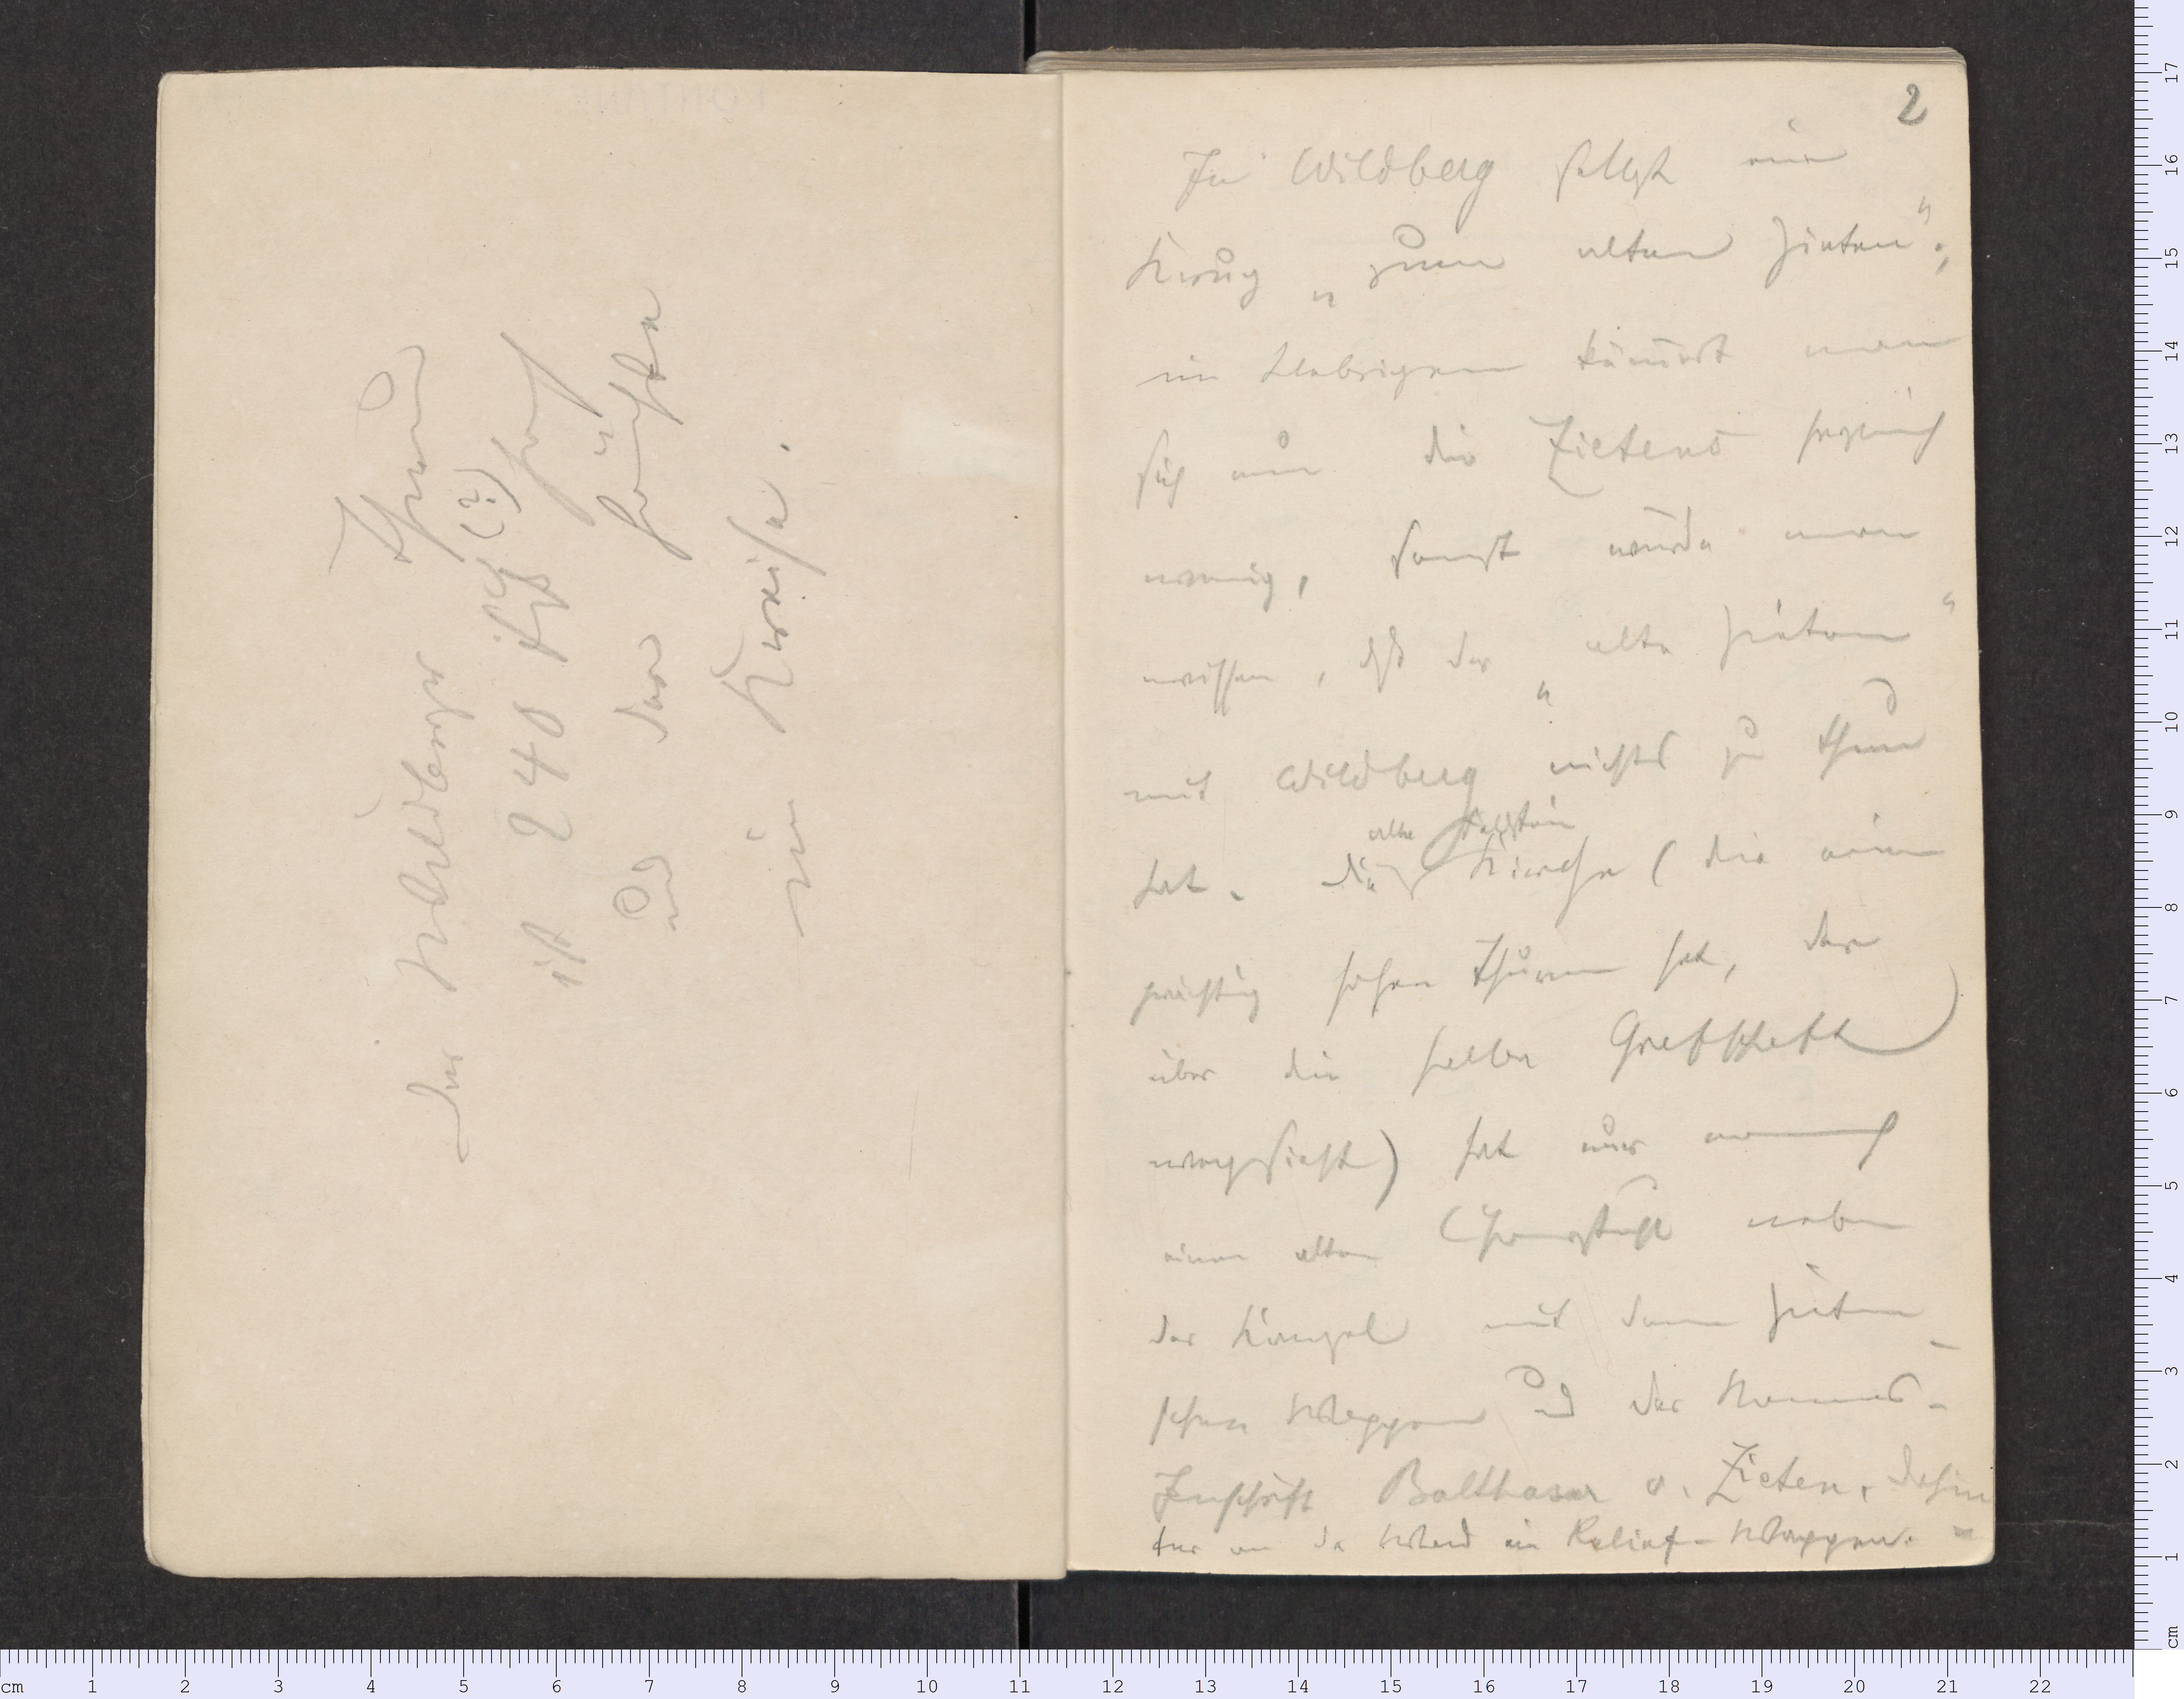 Der Wildberger Thurm
ist 240 Fuß (?) hoch
und der höchste
im Kreise.
2
In Wildberg selbst ein
Krug „zum alten Zieten“;
im Uebrigen kümert man
sich um die Zietens herzlich
wenig, sonst würde man
wissen, dß der „alte Zieten“
mit Wildberg nichts zu thun
hat. Die alte Feldstein
Kirche (die einen
prächtig hohen Thurm hat, der
über die halbe Grafschaft
wegsieht) hat nur noch
einen alten Chorstuhl neben
der Kanzel mit dem Zieten-
schen Wappen und der Namens-
Inschrift Balthasar v. Zieten, dahin
ter an der Wand ein Relief-Wappen.